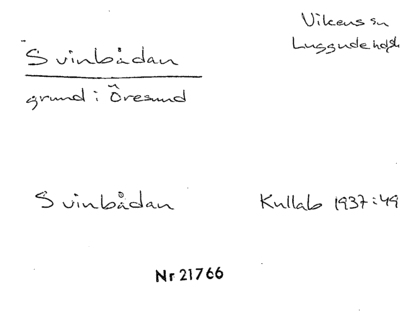 Vikens sn
Luggude hd
Svinbådan
grund i Öresund
Svinbådan Kullab 1937:49
Nr 21766